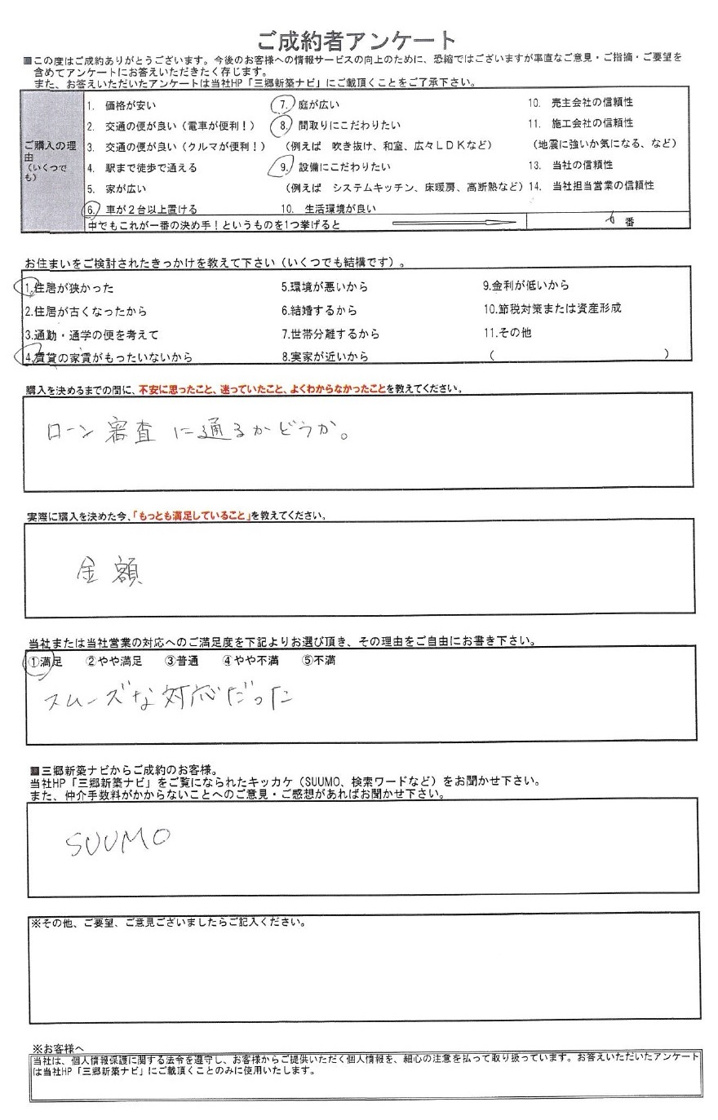 ご成約者アンケート
■この度はご成約ありがとうございます。今後のお客様への情報サービスの向上のために、恐縮ではございますが率直なご意見・ご指摘・ご要望を
含めてアンケートにお答えいただきたく存じます。
また、お答えいただいたアンケートは当社HP「三郷新築ナビ」にご載頂くことをご了承下さい。
ご購入の理由
(いくつでも)
1. 価格が安い
2. 交通の便が良い(電車が便利!)
3. 交通の便が良い(クルマが便利!)
4. 駅まで徒歩で通える
5. 家が広い
6. 車が2台以上置ける
7. 庭が広い
8. 間取りにこだわりたい
(例えば 吹き抜け、和室、広々LDKなど)
9. 設備にこだわりたい
(例えば システムキッチン、床暖房、高断熱など)
10. 生活環境が良い
10. 売主会社の信頼性
11. 施工会社の信頼性
(地震に強いか気になる、など)
13. 当社の信頼性
14. 当社担当営業の信頼性
中でもこれが一番の決め手!というものを1つ挙げると
6 番
お住まいをご検討されたきっかけを教えて下さい(いくつでも結構です)。
1.住居が狭かった
2.住居が古くなったから
3.通勤・通学の便を考えて
4.賃貸の家賃がもったいないから
5.環境が悪いから
6.結婚するから
7.世帯分離するから
8.実家が近いから
9.金利が低いから
10.節税対策または資産形成
11.その他
( )
購入を決めるまでの間に、不安に思ったこと、迷っていたこと、よくわからなかったことを教えてください。
ローン審査に通るかどうか。
実際に購入を決めた今、「もっとも満足していること」を教えてください。
金額
当社または当社営業の対応へのご満足度を下記よりお選び頂き、その理由をご自由にお書き下さい。
①満足 ②やや満足 ③普通 ④やや不満 ⑤不満
スムーズな対応だった
■三郷新築ナビからご成約のお客様。
当社HP「三郷新築ナビ」をご覧になられたキッカケ(SUUMO、検索ワードなど)をお聞かせ下さい。
また、仲介手数料がかからないことへのご意見・ご感想があればお聞かせ下さい。
SUUMO
※その他、ご要望、ご意見ございましたらご記入ください。
※お客様へ
当社は、個人情報保護に関する法令を遵守し、お客様からご提供いただく個人情報を、細心の注意を払って取り扱っています。お答えいただいたアンケート
は当社HP「三郷新築ナビ」にご載頂くことのみに使用いたします。